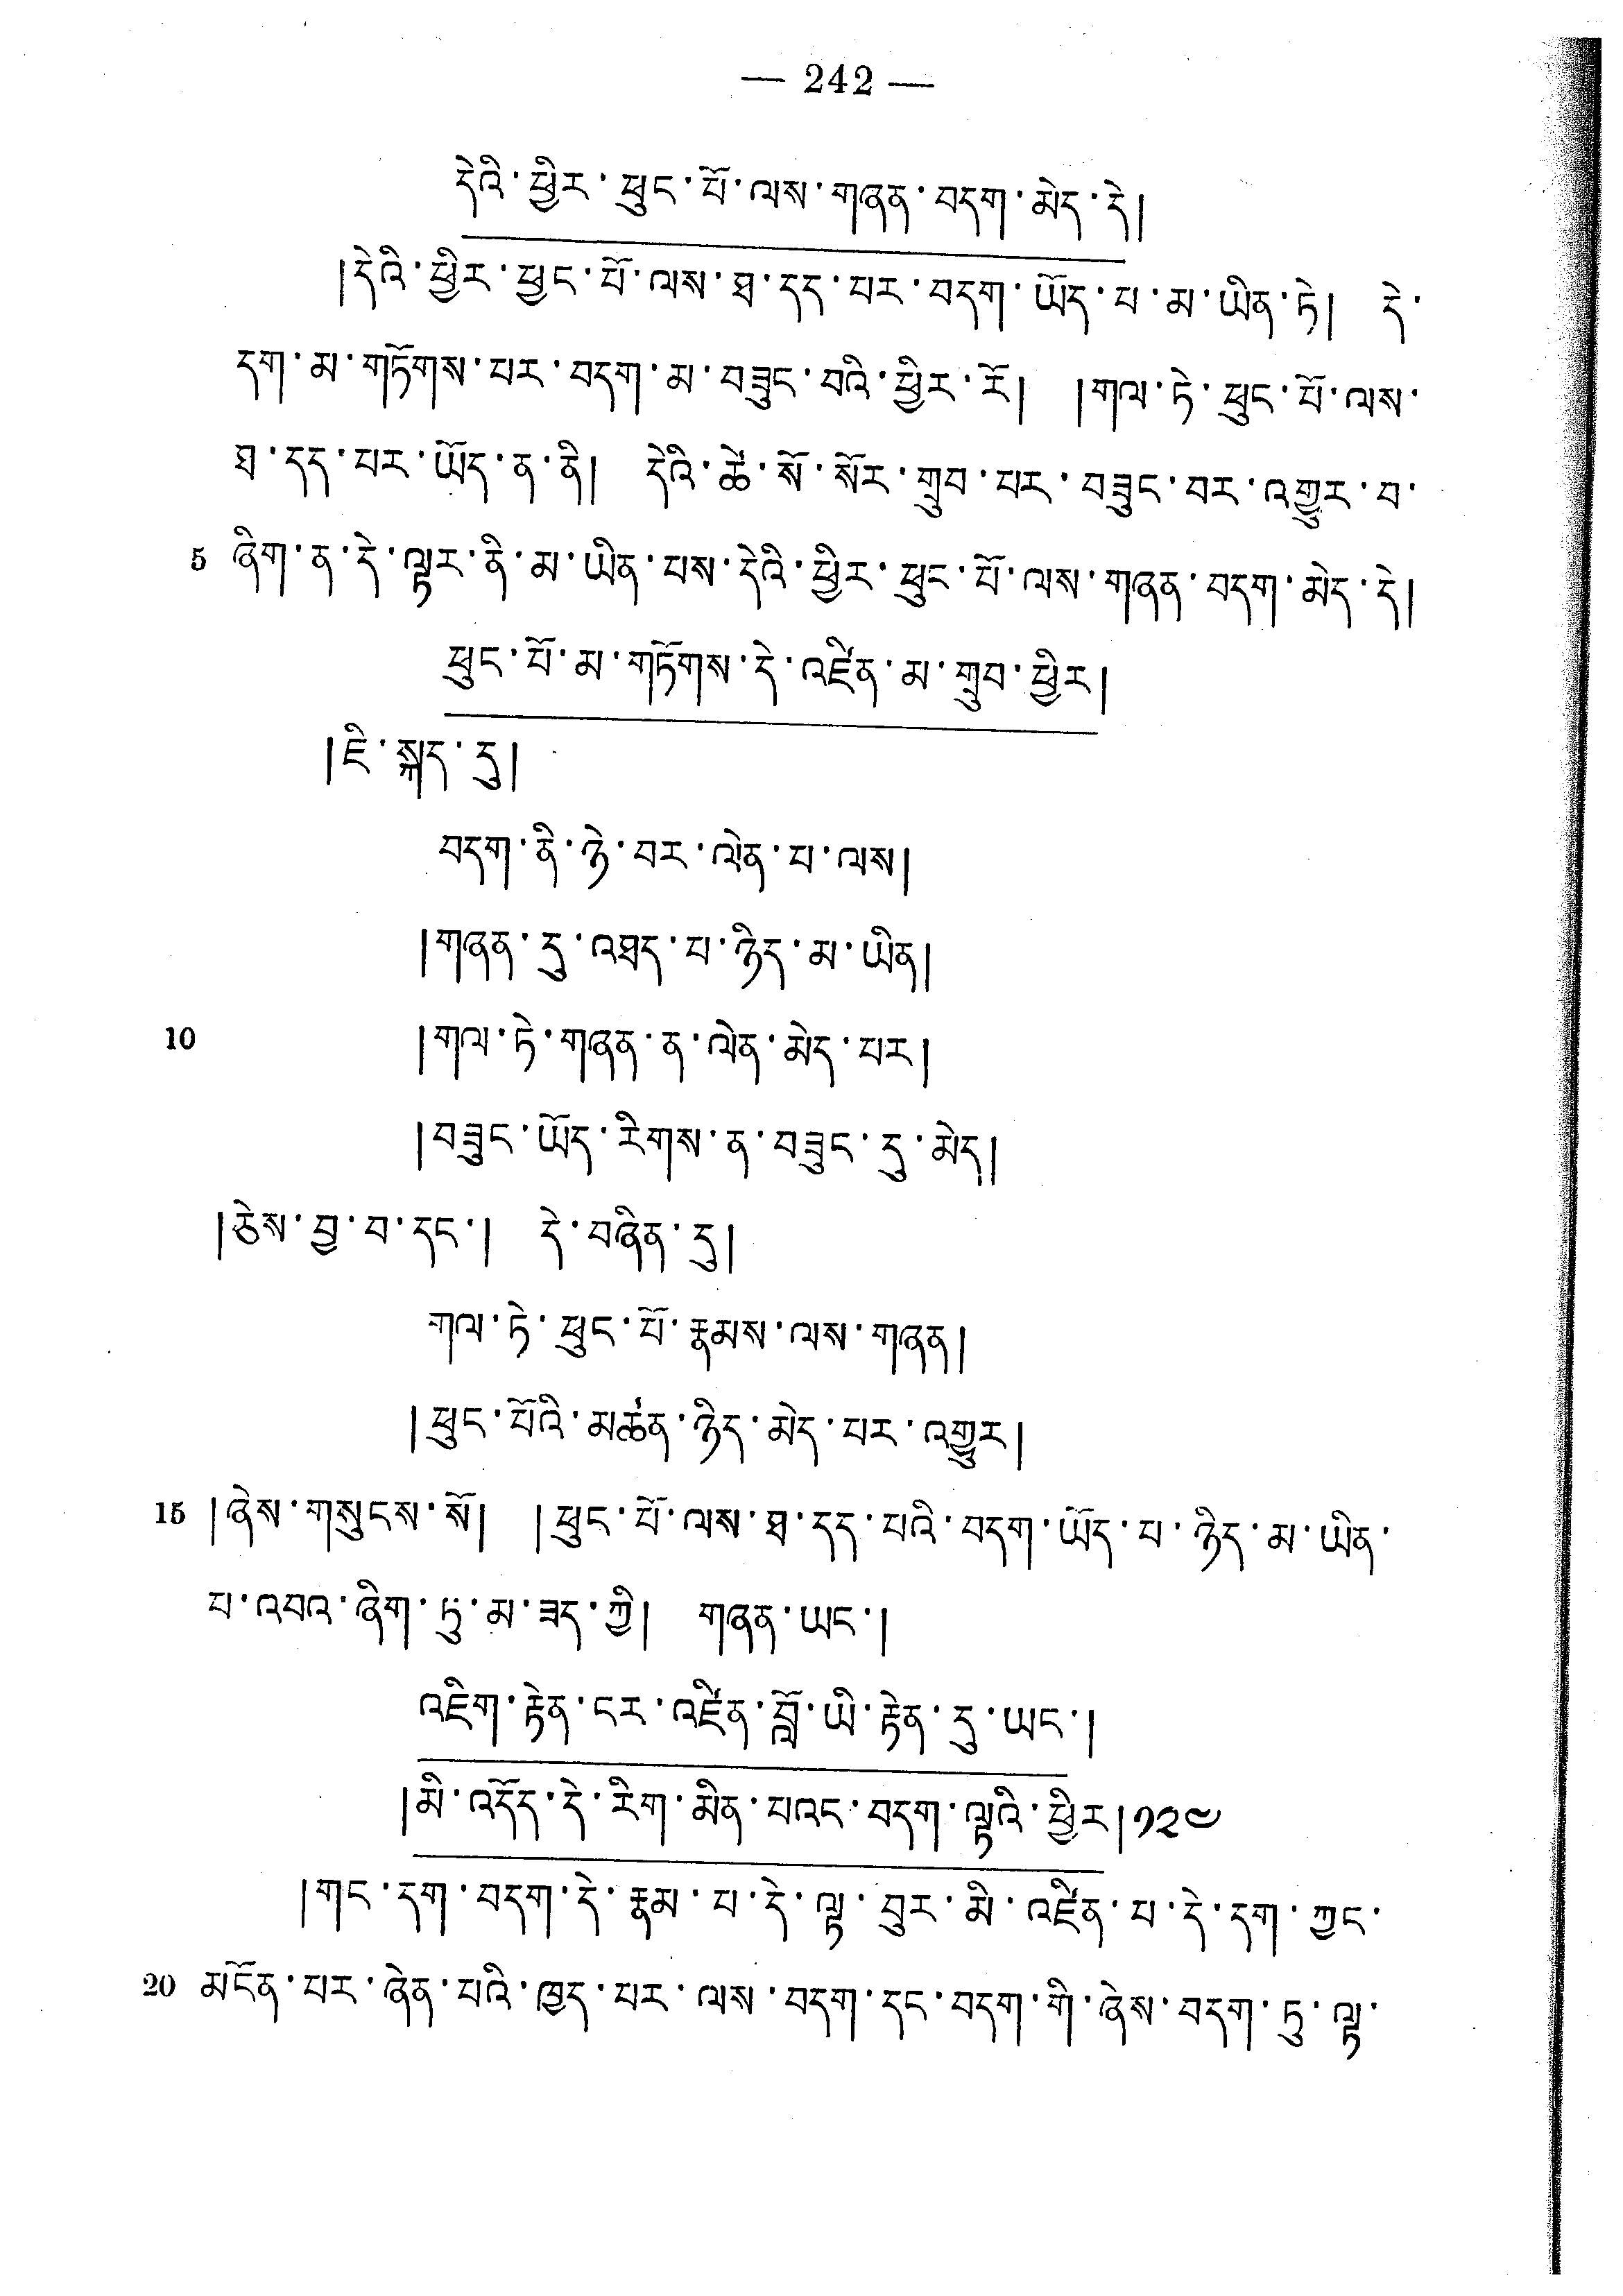 — 242 —
དེའི་ཕྱིར་ཕུང་པོ་ལས་གཞན་བདག་མེད་དེ།
།དེའི་ཕྱིར་ཕྱང་པོ་ལས་ཐ་དད་པར་བདག་ཡོད་པ་མ་ཡིན་ཏེ། དེ་
དག་མ་གཏོགས་པར་བདག་མ་བཟུང་བའི་ཕྱིར་རོ། །གལ་ཏེ་ཕུང་པོ་ལས་
ཐ་དད་པར་ཡོད་ན་ནི། དེའི་ཚེ་སོ་སོར་གྲུབ་པར་བཟུང་བར་འགྱུར་བ་
5 ཞིག་ན་དེ་ལྟར་ནི་མ་ཡིན་པས་དེའི་ཕྱིར་ཕུང་པོ་ལས་གཞན་བདག་མེད་དེ།
ཕུང་པོ་མ་གཏོགས་དེ་འཛིན་མ་གྲུབ་ཕྱིར།
།ཇི་སྐད་དུ།
བདག་ནི་ཉེ་བར་ལེན་པ་ལས།
།གཞན་དུ་འཐད་པ་ཉིད་མ་ཡིན།
10 །གལ་ཏེ་གཞན་ན་ལེན་མེད་པར།
།བཟུང་ཡོད་རིགས་ན་བཟུང་དུ་མེད།
།ཅེས་བྱ་བ་དང་། དེ་བཞིན་དུ།
གལ་ཏེ་ཕུང་པོ་རྣམས་ལས་གཞན།
།ཕུང་པོའི་མཚན་ཉིད་མེད་པར་འགྱུར།
15 །ཞེས་གསུངས་སོ། །ཕུང་པོ་ལས་ཐ་དད་པའི་བདག་ཡོད་པ་ཉིད་མ་ཡིན་
པ་འབའ་ཞིག་ཏུ་མ་ཟད་ཀྱི། གཞན་ཡང་།
འཇིག་རྟེན་ངར་འཛིན་བློ་ཡི་རྟེན་དུ་ཡང་།
།མི་འདོད་དེ་རིག་མིན་པའང་བདག་ལྟའི་ཕྱིར།༡༢༤
།གང་དག་བདག་དེ་རྣམ་པ་དེ་ལྟ་བུར་མི་འཛིན་པ་དེ་དག་ཀྱང་
20 མངོན་པར་ཞེན་པའི་ཁྱད་པར་ལས་བདག་དང་བདག་གི་ཞེས་བདག་ཏུ་ལྟ་